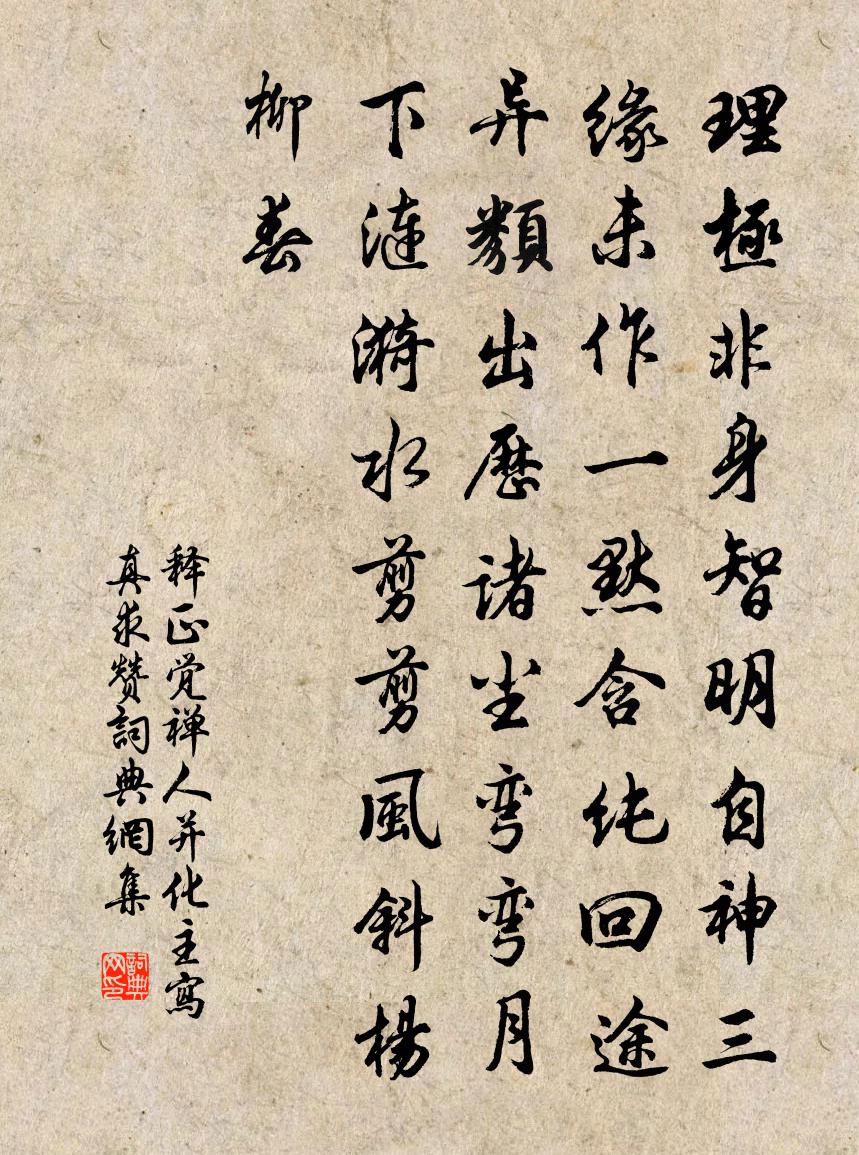 理極非身智明自神三
緣未作一點含純回途
异類出歷諸尘弯弯月
下漣漪水剪剪風斜楊
柳春
释正觉禅人并化主寫
真求赞詞典網集
詞典网印